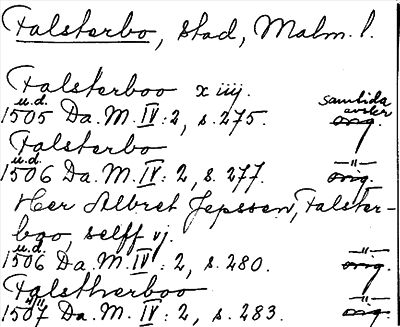 Falsterbo, stad, Malm. l.
Falsterboo x iiij.
u.d. samtida
1505 Da. M. IV: 2, s. 275. avskr. orig.
Falsterbo
u.d. —"—
1506 Da. M. IV: 2, s. 277. orig.
Her Albret Jepssen, Falster-
boo, selff vj.
u.d. —"—
1506 Da. M. IV: 2, s. 280. orig.
Falstherboo
1507 Da. M. IV: 2, s. 283. —"— orig.